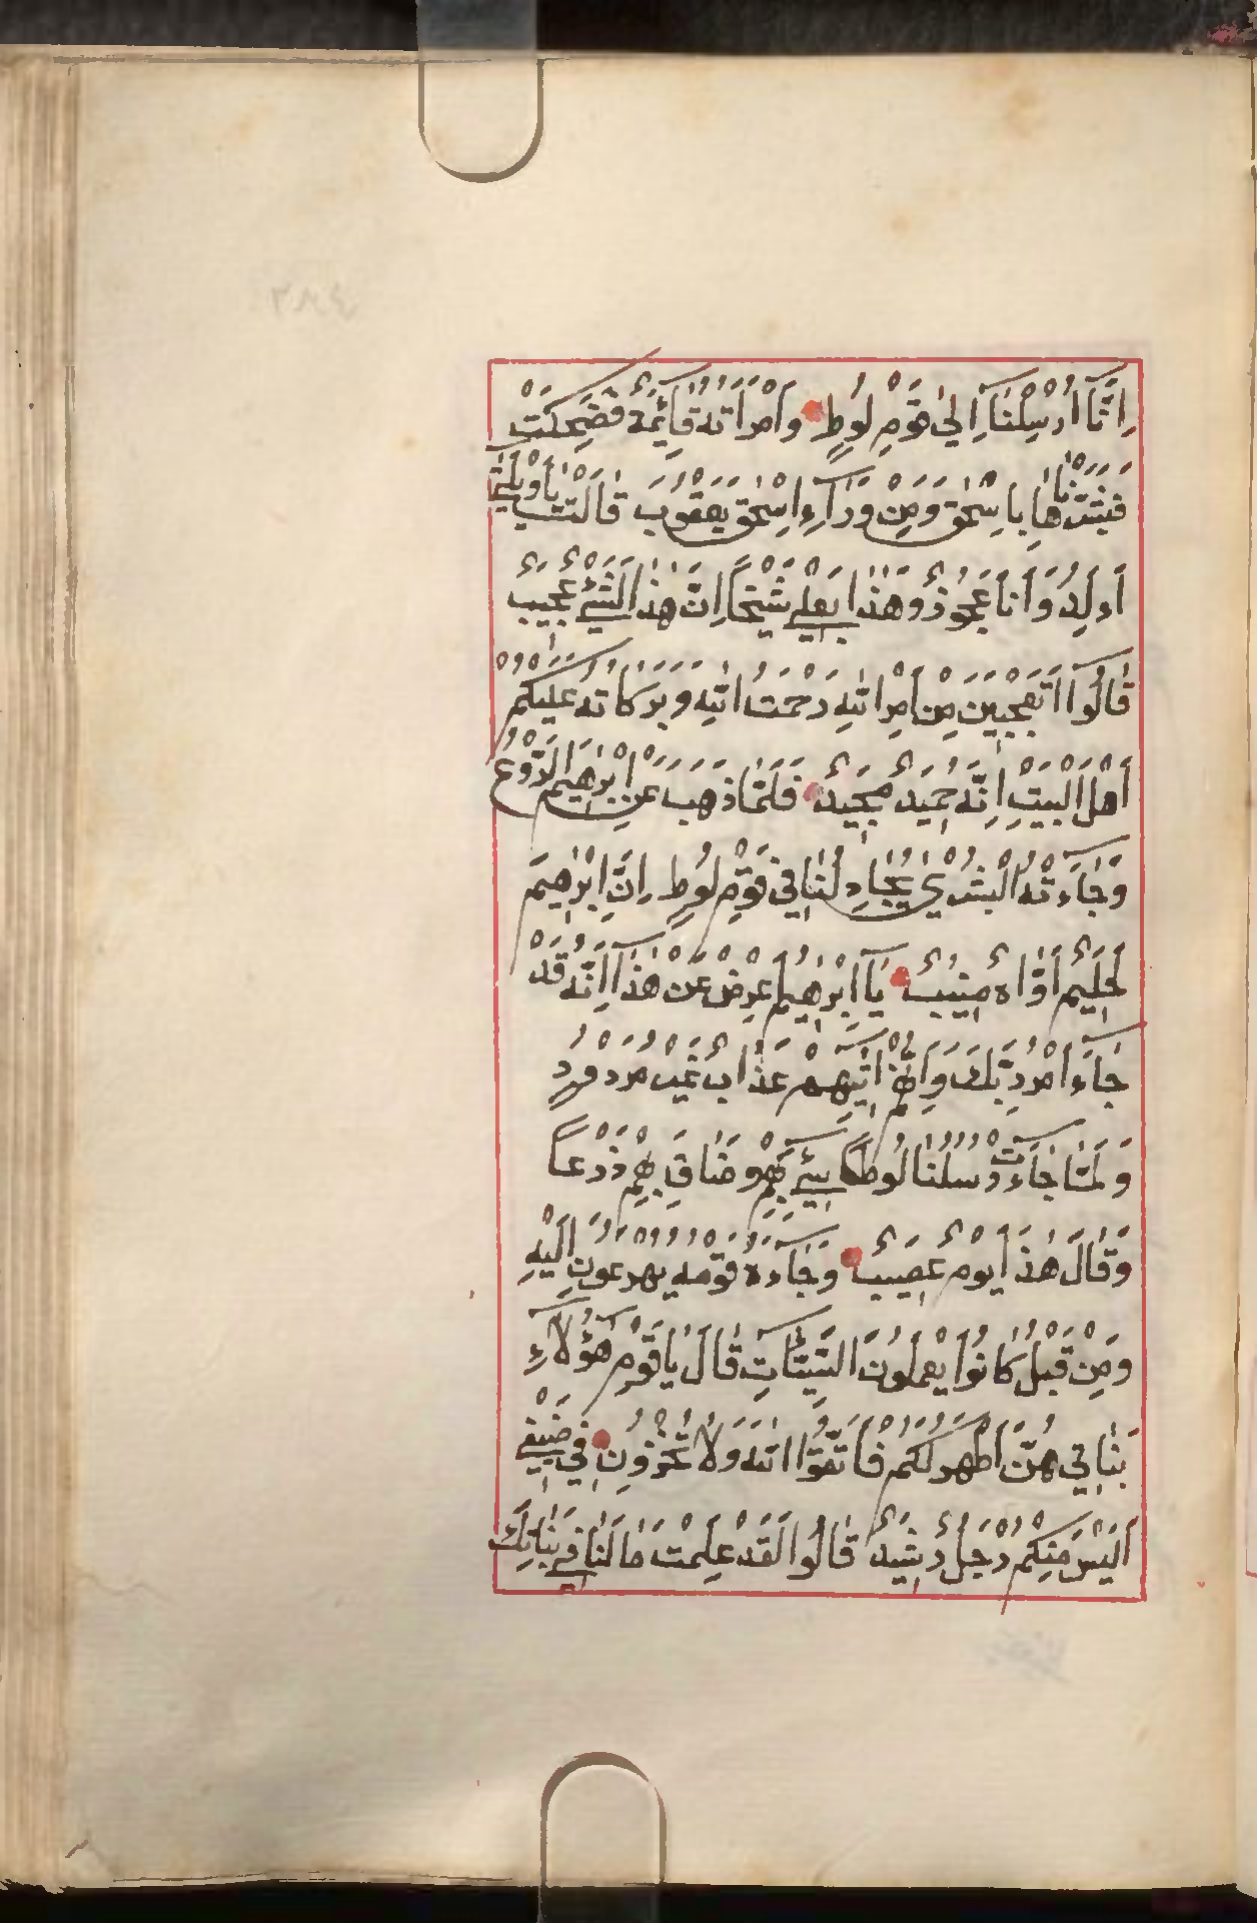 اِنَّآ اُرْسِلْنَآ اِلىٰ قَوْمِ لُوطٍ وَامْرَاَتُهُ قَآئِمَةٌ فَضَحِكَتْ
فَبَشَّرْنَاهَا بِاِسْحٰقَ وَمِنْ وَرَآءِ اِسْحٰقَ يَعْقُوبَ قَالَتْ يَا وَيْلَتٰى
ءَاَلِدُ وَاَنَا عَجُوزٌ وَهٰذَا بَعْلِي شَيْخًا اِنَّ هٰذَا لَشَيْءٌ عَجِيبٌ
قَالُوا اَتَعْجَبِينَ مِنْ اَمْرِ اللهِ رَحْمَتُ اللهِ وَبَرَكَاتُهُ عَلَيْكُمْ
اَهْلَ الْبَيْتِ اِنَّهُ حَمِيدٌ مَجِيدٌ فَلَمَّا ذَهَبَ عَنْ اِبْرٰهِيمَ الرَّوْعُ
وَجَآءَتْهُ الْبُشْرٰي يُجَادِلُنَا فِي قَوْمِ لُوطٍ اِنَّ اِبْرٰهِيمَ
لَحَلِيمٌ اَوَّاهٌ مُنِيبٌ يَآ اِبْرٰهِيمُ اَعْرِضْ عَنْ هٰذَا اِنَّهُ قَدْ
جَآءَ اَمْرُ رَبِّكَ وَاِنَّهُمْ اٰتِيهِمْ عَذَابٌ غَيْرُ مَرْدُودٍ
وَلَمَّا جَآءَتْ رُسُلُنَا لُوطًا سِيءَ بِهِمْ وَضَاقَ بِهِمْ ذَرْعًا
وَقَالَ هٰذَا يَوْمٌ عَصِيبٌ وَجَآءَهُ قَوْمُهُ يُهْرَعُونَ اِلَيْهِ
وَمِنْ قَبْلُ كَانُوا يَعْمَلُونَ السَّيِّئَاتِ قَالَ يَا قَوْمِ هٰٓؤُلَآءِ
بَنَاتِي هُنَّ اَطْهَرُ لَكُمْ فَاتَّقُوا اللهَ وَلَا تُخْزُونِ فِي ضَيْفِي
اَلَيْسَ مِنْكُمْ رَجُلٌ رَشِيدٌ قَالُوا لَقَدْ عَلِمْتَ مَا لَنَا فِي بَنَاتِكَ